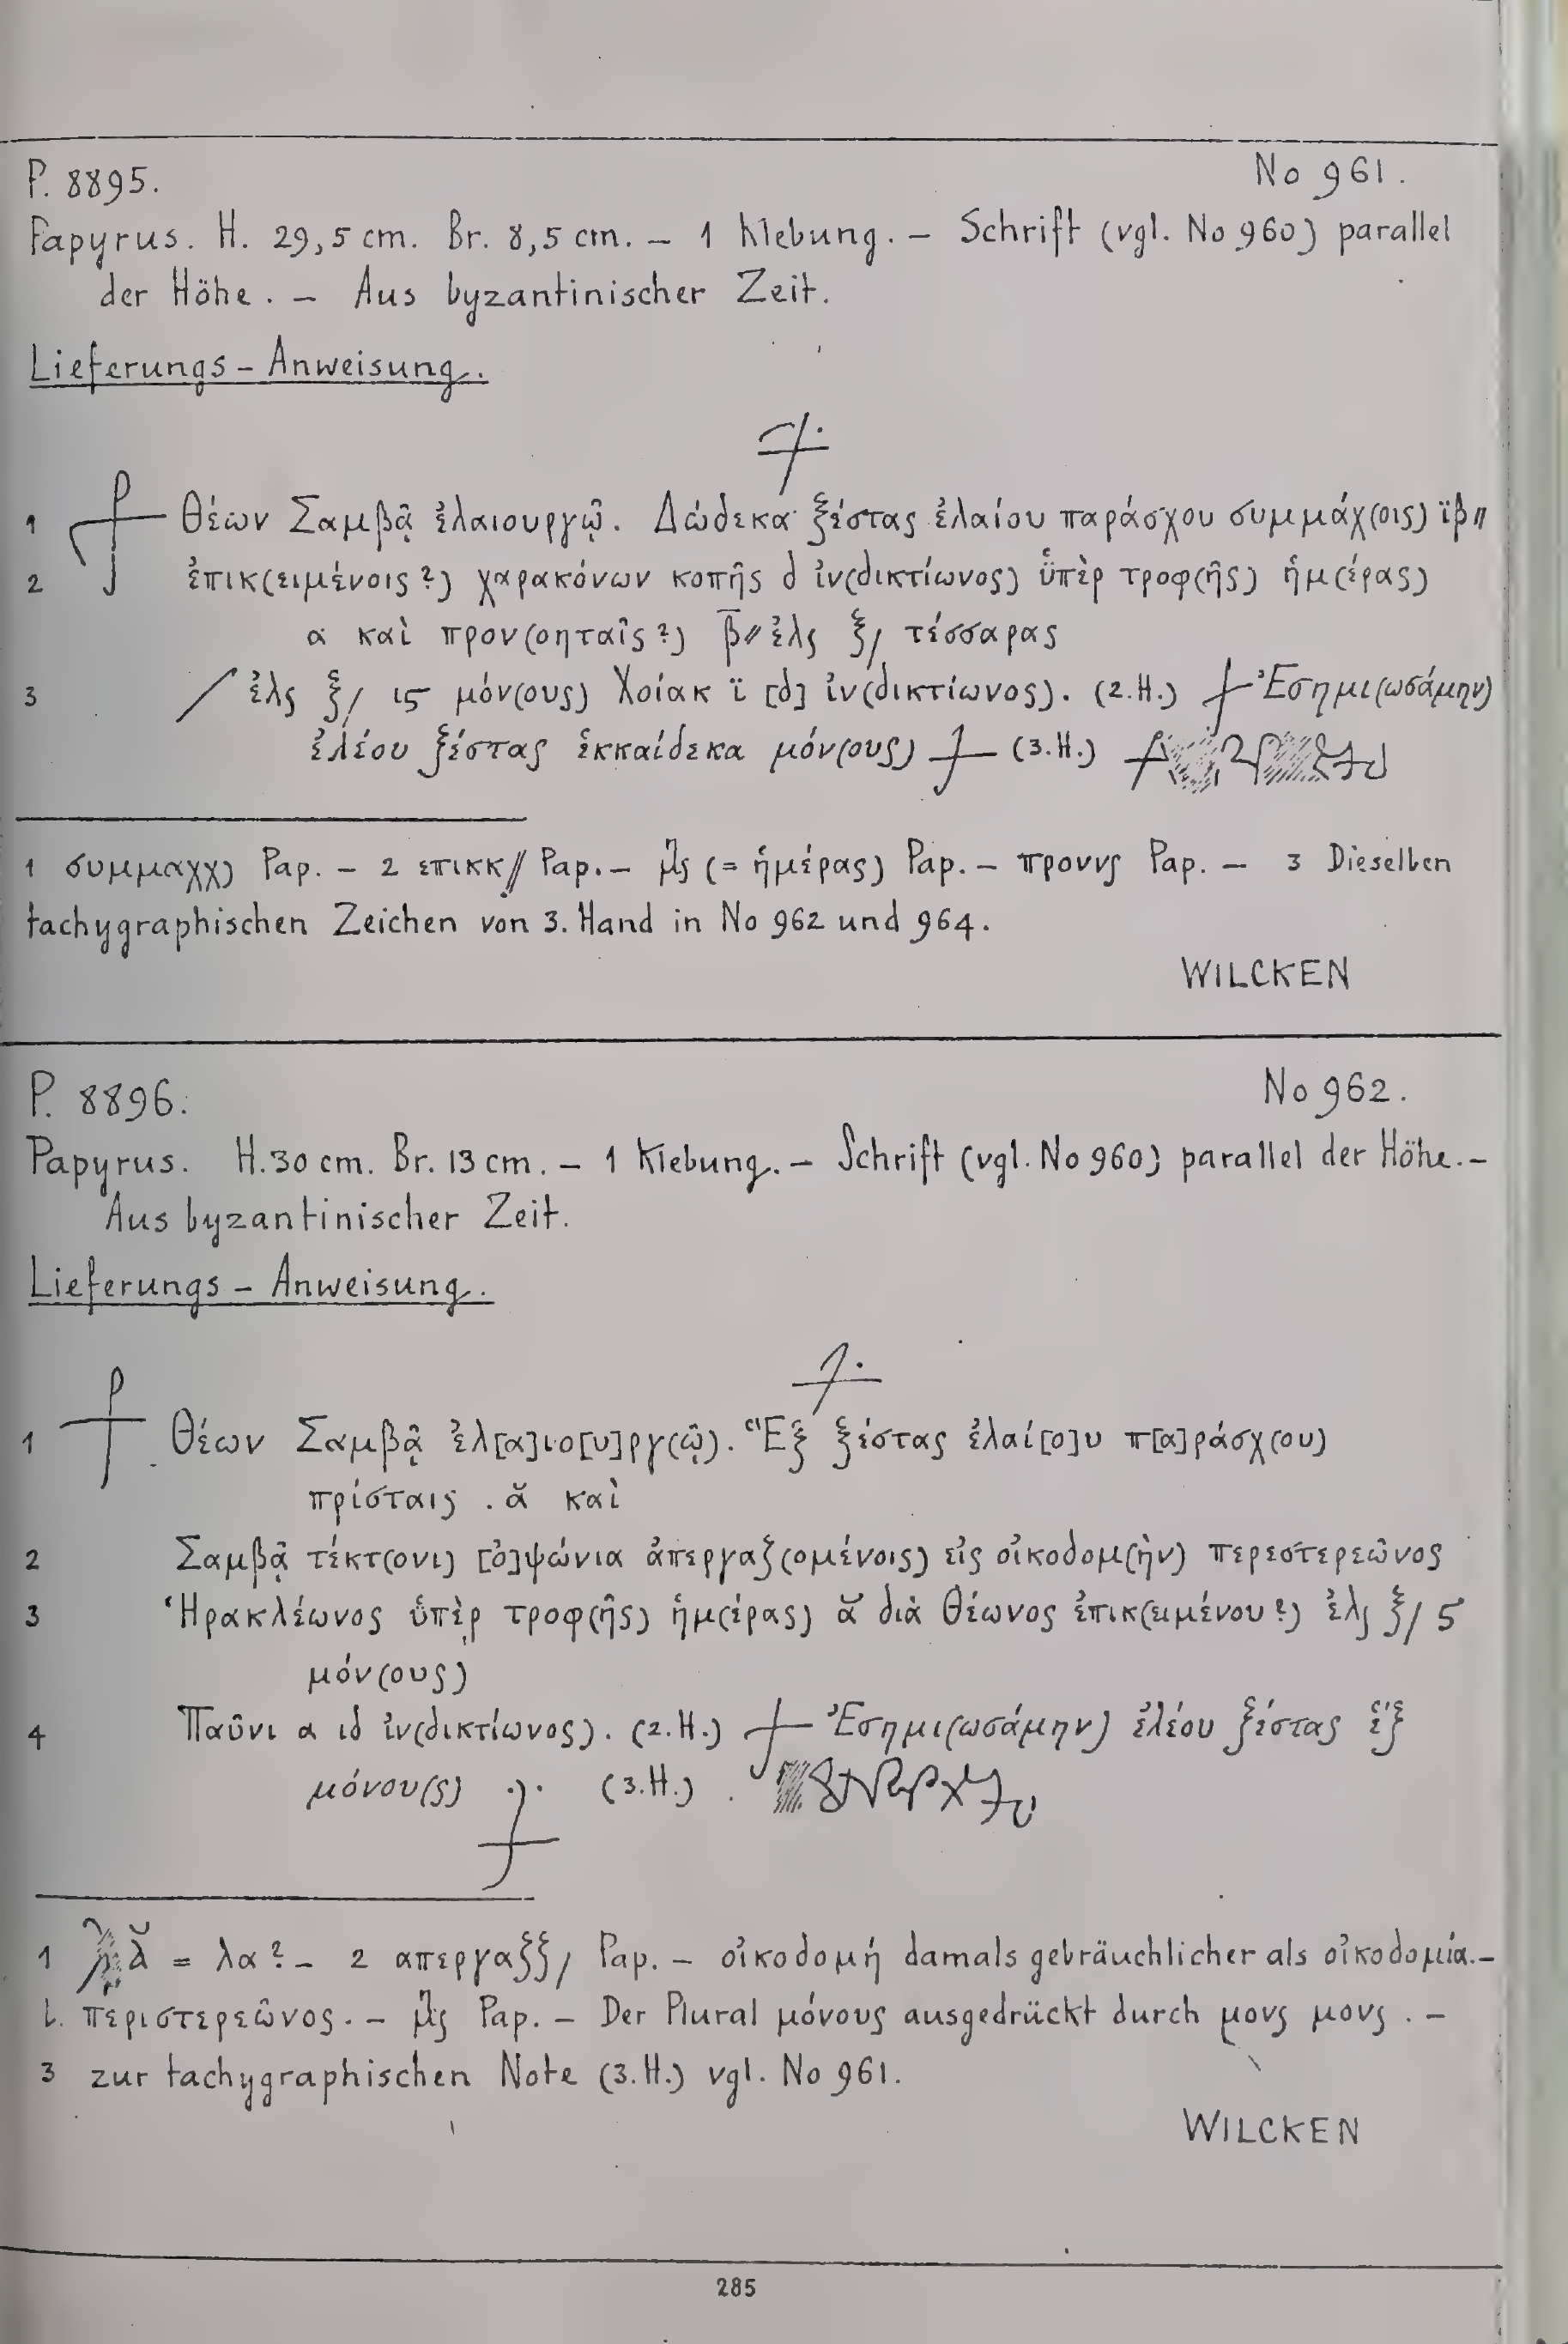 P. 8895. No 961.
Papyrus. H. 29,5 cm. Br. 8,5 cm. – 1 Klebung. – Schrift (vgl. No 960) parallel
der Höhe. – Aus byzantinischer Zeit.
Lieferungs-Anweisung.
1 Θέων Σαμβᾷ ἐλαιουργῷ. Δώδεκα ξέστας ἐλαίου παράσχου συμμάχ(οις) ϊβ//
2 ἐπικ(ειμένοις?) χαρακόνων κοπῆς d ἰν(δικτίωνος) ὕπὲρ τροφ(ῆς) ἡμ(έρας)
α καὶ προν(οηταῖς?) β̅// ἐλς ξ/ τέσσαρας
3 / ἐλς ξ/ ις μόν(ους) Χοίακ ϊ [d] ἰν(δικτίωνος). (2.H.) Ἐσημι(ωσάμην)
ἐλέου ξέστας ἑκκαίδεκα μόν(ους) (3.H.)
1 συμμαχχ) Pap. – 2 επικκ// Pap. – (= ἡμέρας) Pap. – προννς Pap. – 3 Dieselben
tachygraphischen Zeichen von 3. Hand in No 962 und 964.
WILCKEN
P. 8896. No 962.
Papyrus. H. 30 cm. Br. 13 cm. – 1 Klebung. – Schrift (vgl. No 960) parallel der Höhe. –
Aus byzantinischer Zeit.
Lieferungs-Anweisung.
1 Θέων Σαμβᾷ ἐλ[α]ιο[υ]ργ(ῷ). Ἓξ ξέστας ἐλαί[ο]υ π[α]ράσχ(ου)
πρίσταις . ᾰ καὶ
2 Σαμβᾷ τέκτ(ονι) [ὀ]ψώνια ἀπεργαζ(ομένοις) εἰς οἰκοδομ(ὴν) περεστερεῶνος
3 Ἡρακλέωνος ὑπὲρ τροφ(ῆς) ἡμ(έρας) ᾰ διὰ Θέωνος ἐπικ(ειμένου?) ἐλς ξ/ ς
μόν(ους)
4 Παῦνι α ιd ἰν(δικτίωνος). (2.H.) Ἐσημι(ωσάμην) ἐλέου ξέστας ἕξ
μόνου(ς) (3.H.)
1 = λα? – 2 απεργαξξ/ Pap. – οἰκοδομή damals gebräuchlicher als οἰκοδομία. –
l. περιστερεῶνος. – Pap. – Der Plural μόνους ausgedrückt durch μονς μονς. –
3 zur tachygraphischen Note (3.H.) vgl. No 961.
WILCKEN
285